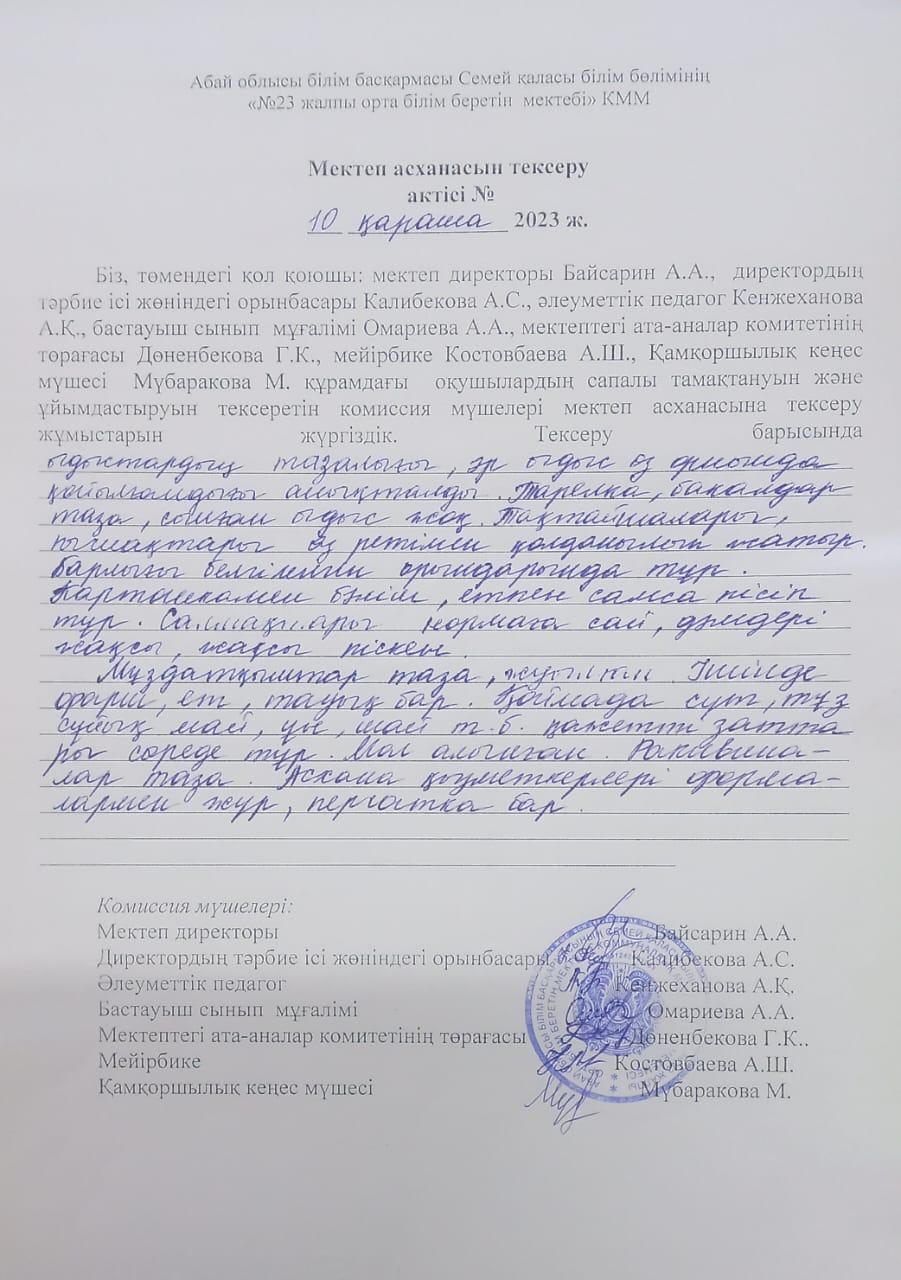 Абай облысы білім басқармасы Семей қаласы білім бөлімінің
«№23 жалпы орта білім беретін мектебі» КММ
Мектеп асханасын тексеру
актісі №
10 қараша 2023 ж.
Біз, төмендегі қол қоюшы: мектеп директоры Байсарин А.А., директордың
тәрбие ісі жөніндегі орынбасары Калибекова А.С., әлеуметтік педагог Кенжеханова
А.Қ., бастауыш сынып мұғалімі Омариева А.А., мектептегі ата-аналар комитетінің
төрағасы Дөненбекова Г.К., мейірбике Костовбаева А.Ш., Қамқоршылық кеңес
мүшесі Мұбаракова М. құрамдағы оқушылардың сапалы тамақтануын және
ұйымдастыруын тексеретін комиссия мүшелері мектеп асханасына тексеру
жұмыстарын жүргіздік. Тексеру барысында
ыдыстардың тазалығы, әр ыдыс өз орнында
қойылғандығы анықталды. Тарелка, бакалдар
таза, сынған ыдыс жоқ. Тақтайшалары,
пышақтары өз ретімен қолданылып жатыр.
барлығы белгіленген орындарында тұр.
Картошкамен бәліш, етпен самса пісіп
тұр. Салмақтары нормаға сай, дәмдері
жақсы, жақсы піскен.
Мұздатқыштар таза, жуылған. Ішінде
фарш, ет, тауық бар. Қоймада сүт, тұз
сұйық май, ұн, шай т.б. қажетті затта
ры сөреде тұр. Мол алынған. Раковина-
лар таза. Асхана қызметкерлері форма-
лармен жүр, перчатка бар.
Комиссия мүшелері:
Мектеп директоры Байсарин А.А.
Директордың тәрбие ісі жөніндегі орынбасары Калибекова А.С.
Әлеуметтік педагог Кенжеханова А.Қ.
Бастауыш сынып мұғалімі Омариева А.А.
Мектептегі ата-аналар комитетінің төрағасы Дөненбекова Г.К..
Мейірбике Костовбаева А.Ш.
Қамқоршылық кеңес мүшесі Мұбаракова М.